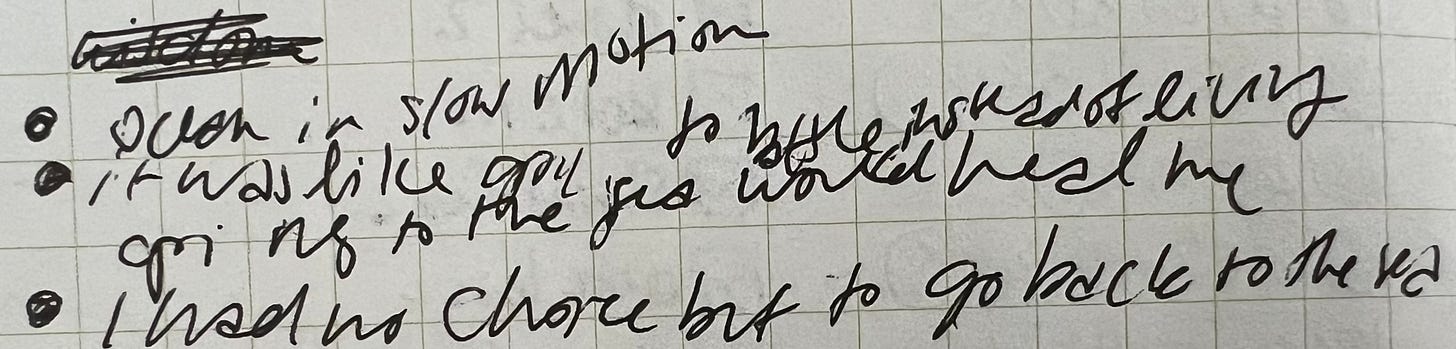 • ocean in slow motion
to battle instead of living
• it was like
going to the sea would heal me
• I had no choice but to go back to the sea